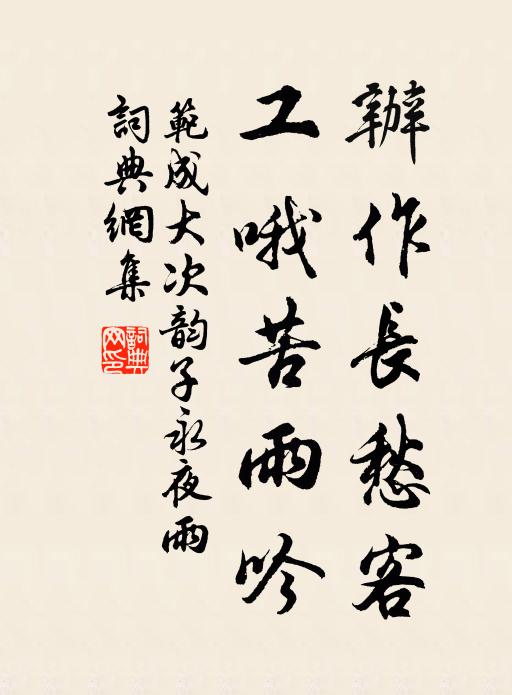 辦作長愁客
工哦苦雨吟
範成大次韵子永夜雨
詞典網集
詞典
网印